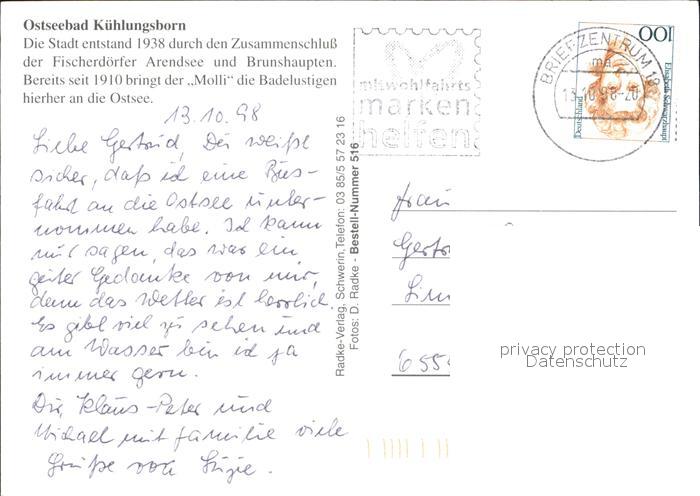 Ostseebad Kühlungsborn
Die Stadt entstand 1938 durch den Zusammenschluß
der Fischerdörfer Arendsee und Brunshaupten.
Bereits seit 1910 bringt der „Molli“ die Badelustigen
hierher an die Ostsee.
13.10.98
Liebe Gertrud, Du weißt
sicher, daß ich eine Bus-
fahrt an die Ostsee unter-
nommen habe. Ich kann
nur sagen, das war ein
guter Gedanke von mir,
denn das Wetter ist herrlich.
Es gibt viel zu sehen und
am Wasser bin ich ja
immer gern.
Dir, Klaus-Peter und
Michael mit Familie viele
Grüße von
Radke-Verlag, Schwerin, Telefon: 03 85/5 57 23 16
Fotos: D. Radke - Bestell-Nummer 516
mit wohlfahrts
marken
helfen
BRIEFZENTRUM 18
ma
13.10.98-20
100
Deutschland
Elisabeth Schwarzhaupt
Frau
Gertr
Lin
655
privacy protection
Datenschutz